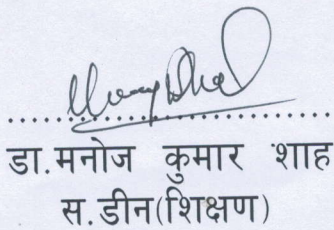 डा.मनोज कुमार शाह
स.डीन(शिक्षण)